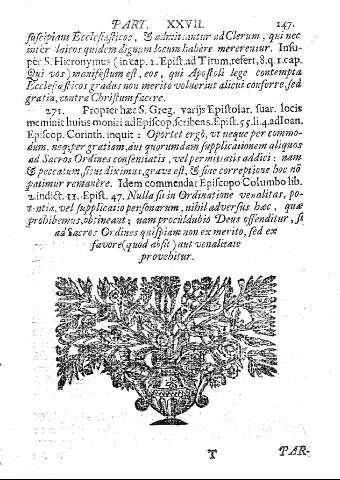 PART. XXVII. 147.
suscipiant Ecclesiasticos, & admittantur ad Clerum, qui nec
inter laicos quidem dignum locum habere mererentur. Insu-
per S. Hieronymus (in cap. 1. Epist. ad Titum, refert, 8. q. 1. cap.
Qui vos) manifestum est, eos, qui Apostoli lege contempta
Ecclesiasticos gradus non merito voluerint alicui conferre, sed
gratia, contra Christum facere.
271. Propter hæc S. Greg. varijs Epistolar. suar. locis
meminit huius moniti ad Episcop. scribens. Epist. 55. li. 4. ad Ioan.
Episcop. Corinth. inquit: Oportet ergò, ut neque per commo-
dum, neq; per gratiam, aut quorumdam supplicationem aliquos
ad Sacros Ordines consentiatis, vel permittatis addici: nam
& peccatum, sicut diximus, grave est, & sine correptione hoc nō
patimur remanere. Idem commendat Episcopo Columbo lib.
2. indict. 11. Epist. 47. Nulla sit in Ordinatione venalitas, po-
tentia, vel supplicatio personarum, nihil adversus hæc, quæ
prohibemus, obtineant; nam proculdubio Deus offenditur, si
ad Sacros Ordines quispiam non ex merito, sed ex
favore (quod absit) aut venalitate
provehitur.
T PAR-